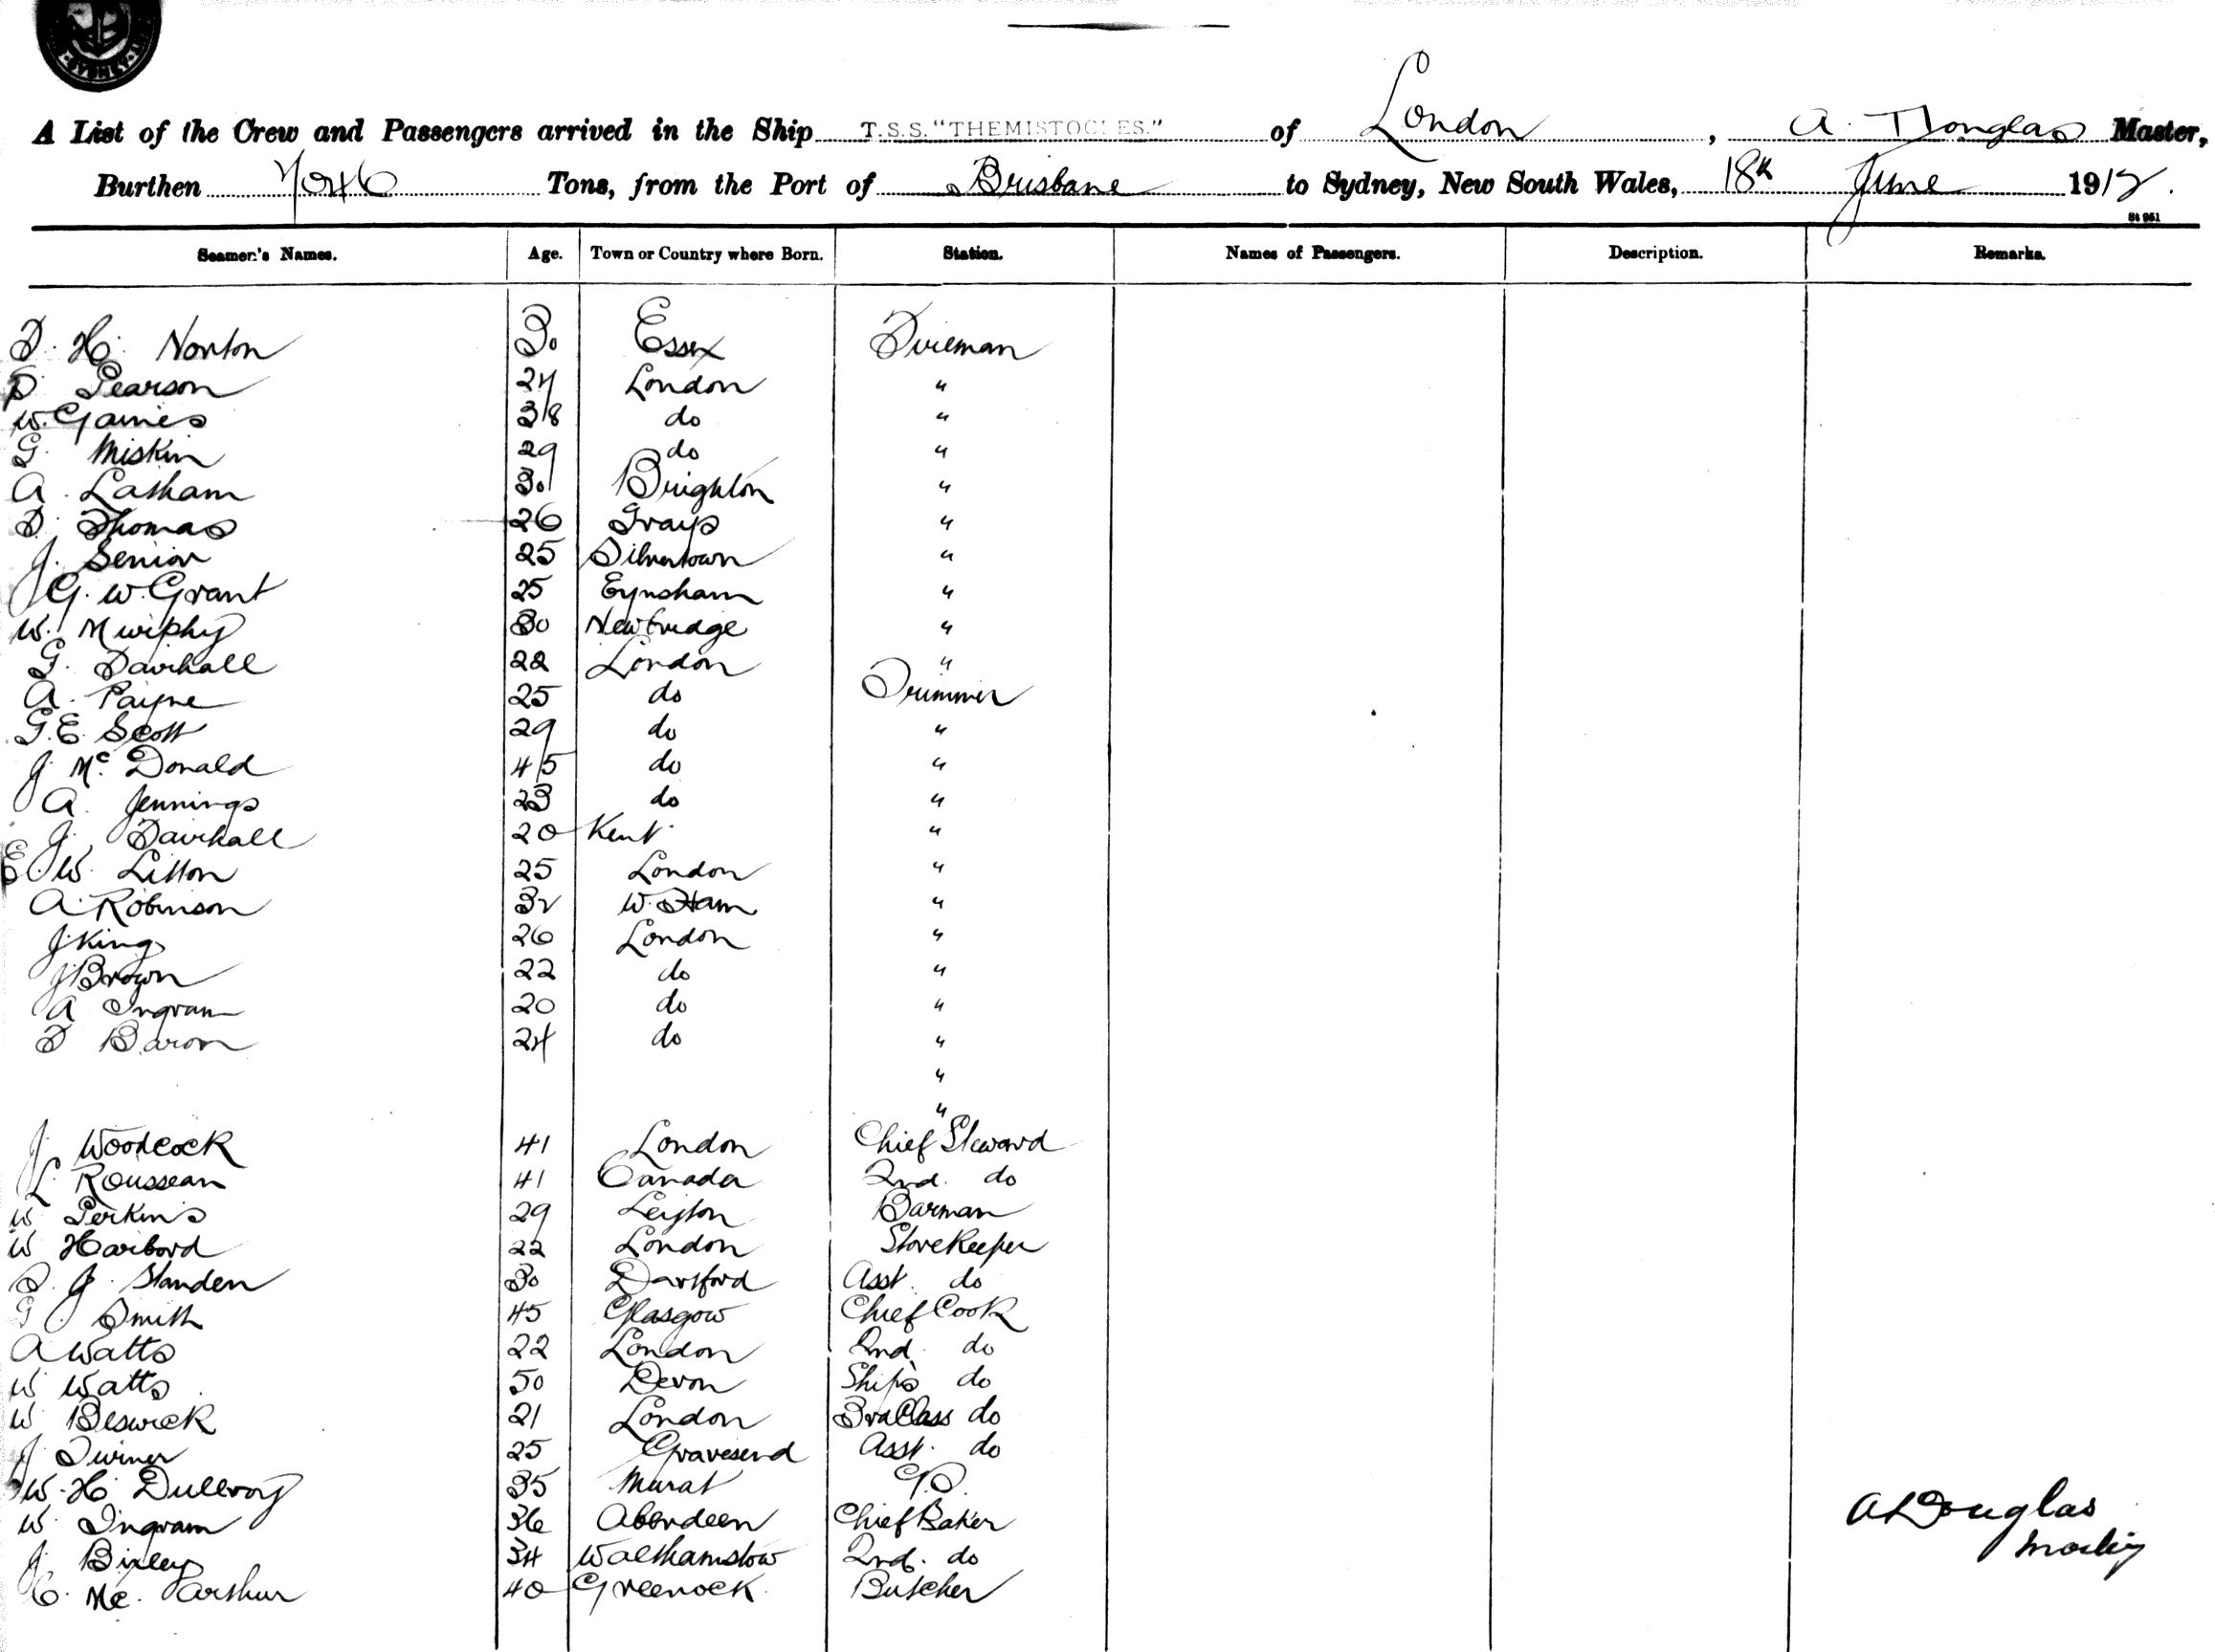 SYDNEY
A List of the Crew and Passengers arrived in the Ship T.S.S. "THEMISTOCLES." of London, A. Douglas Master,
Burthen 7046 Tons, from the Port of Brisbane to Sydney, New South Wales, 18th June 1912.
St 951
Seamen's Names. Age. Town or Country where Born. Station. Names of Passengers. Description. Remarks.
H. Norton 30 Essex Fireman
Pearson 24 London "
W. Gaines 38 do "
G. Miskin 29 do "
A. Latham 30 Brighton "
Thomas 26 Grays "
J. Senior 25 Silvertown "
G. W. Grant 25 Eynsham "
W. Murphy 30 Newbridge "
G. Fairhall 22 London "
A. Payne 25 do Trimmer
G. E. Scott 29 do "
J. Mc. Donald 45 do "
A. Jennings 23 do "
J. Fairhall 20 Kent "
E. W. Litton 25 London "
A. Robinson 32 W. Ham "
J. King 26 London "
J. Brown 22 do "
A Ingram 20 do "
Baron 24 do "
"
"
J. Woodcock 41 London Chief Steward
L. Rousseau 41 Canada 2nd. do
W Perkins 29 Leyton Barman
W Harbord 22 London Storekeeper
J. Standen 30 Dartford Asst. do
G. Smith 45 Glasgow Chief Cook
A Watts 22 London 2nd. do
W Watts 50 Devon Ship's do
W Beswick 21 London 3rd Class do
J Turner 25 Gravesend Asst. do
W. H. 35
W. Ingram 36 Aberdeen Chief Baker
J. Bixley 34 Walthamstow 2nd. do
C. Mc. Arthur 40 Greenock Butcher
A Douglas
Master